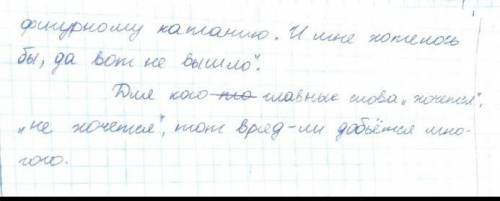 фигурному катанию. И мне хотелось
бы, да вот не вышло".
Для кого-то главных слова „хочется",
„не хочется", тот вряд-ли добьётся мно-
гого.